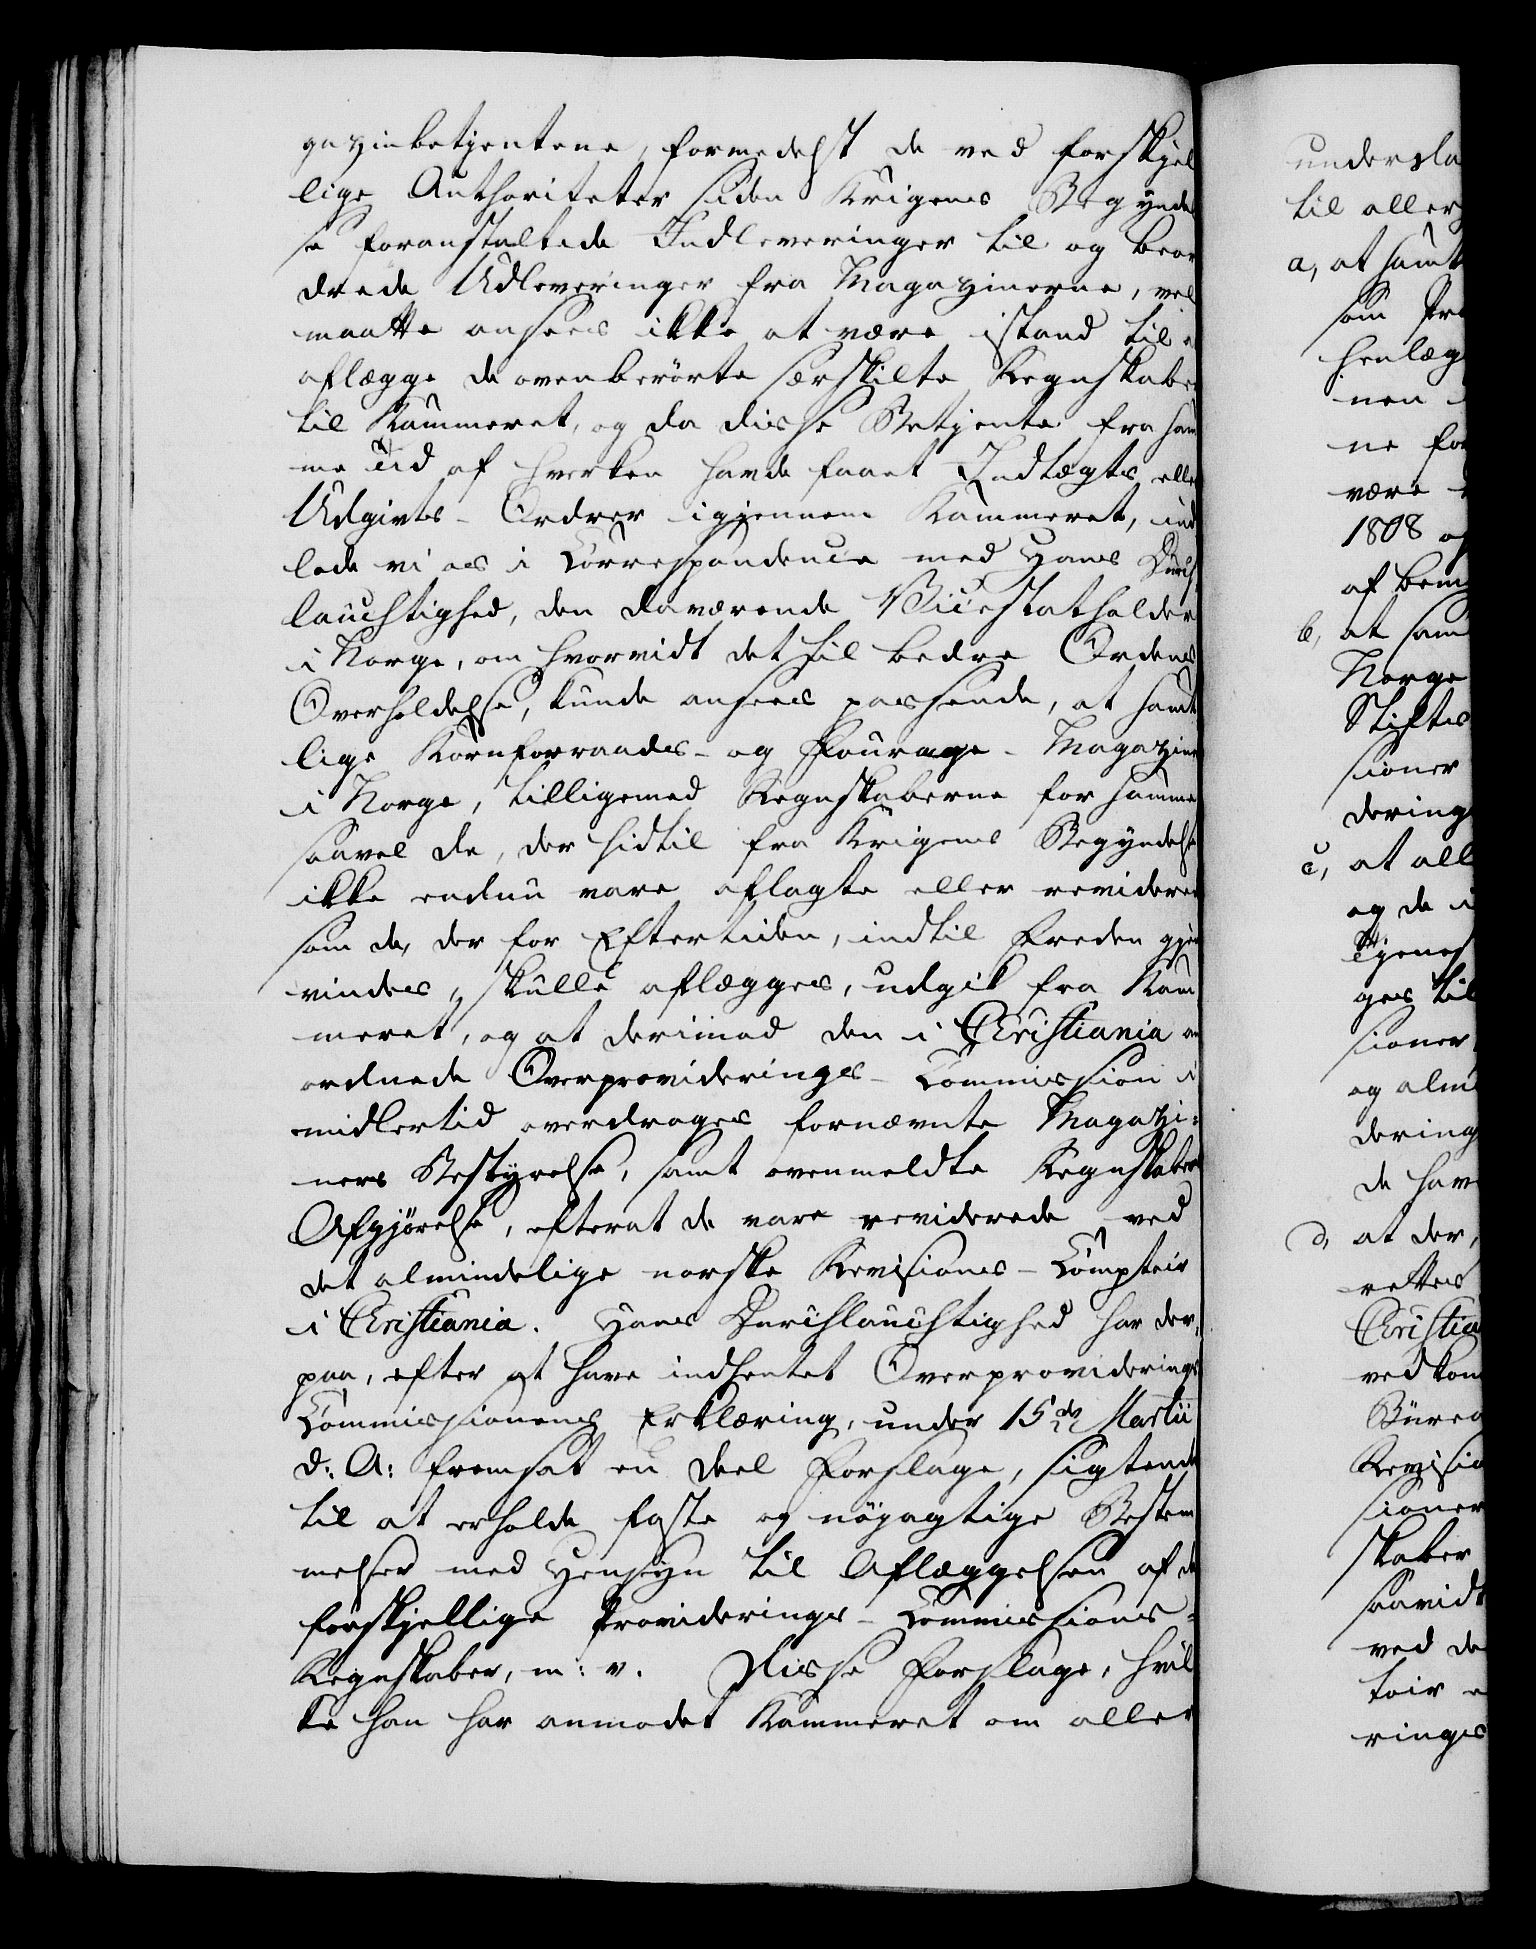 gazinbetjentene, formedelst de ved forskjel
lige Authoriteter siden Krigens Begyndel
se foranstaltede Indleveringer til og beor
drede Udleveringer fra Magazinerne, vel
maatte ansees ikke at være istand til a
aflægge de ovenberörte særskilte Regnskaber
til Kammeret, og da disse Betjente fra sam
me Tid af hverken havde faaet Indtægts eller
Udgivts-Ordrer igjennem Kammeret, ind
lode vi os i Correspondence med Hans Durch
lauchtighed, den daværende Vicestatholder
i Norge, om hvorvidt det til bedre Ordens
Overholdelse, kunde ansees passende, at samt
lige Kornforraads- og Fourage-Magaziner
i Norge, tilligemed Regnskaberne for samme
saavel de, der hidtil fra Krigens Begyndelse
ikke endnu vare aflagte eller reviderede
som de, der for Eftertiden, indtil Freden gjen
vindes, skulle aflægges, udgik fra Kam
meret, og at derimod den i Christiania an
ordnede Overproviderings-Commission i
midlertid overdroges fornævnte Magazi=
ners Bestyrelse, samt ovenmeldte Regnskabers
Afgjörelse, efterat de vare reviderede ved
det almindelige norske Revisions-Comptoir
i Christiania. Hans Durchlauchtighed har der,
paa, efter at have indhentet Overproviderings
Commissionens Erklæring, under 15de Martii
d: A: fremsat en deel Forslage, sigtende
til at erholde faste og nöjagtige Bestem
melser med Hensyn til Aflæggelsen af de
forskjellige Providerings-Commissions-
Regnskaber, m: v. Disse Forslage, hvil
ke han har anmodet Kammeret om aller
undersda
til aller
a, at samt
som Pro
henlæg
nen
ne for
være
1808 og
af bem
b, at sam
Norge
Stifts
sioner
dering
c, at all
og de i
Tjenes
ges til
sioner
og alm
dering
de hav
d, at der,
rettes
Christia
vedkom
Büreau
Revisio
sioner
skaber
saavidt
ved de
toir e
ringes